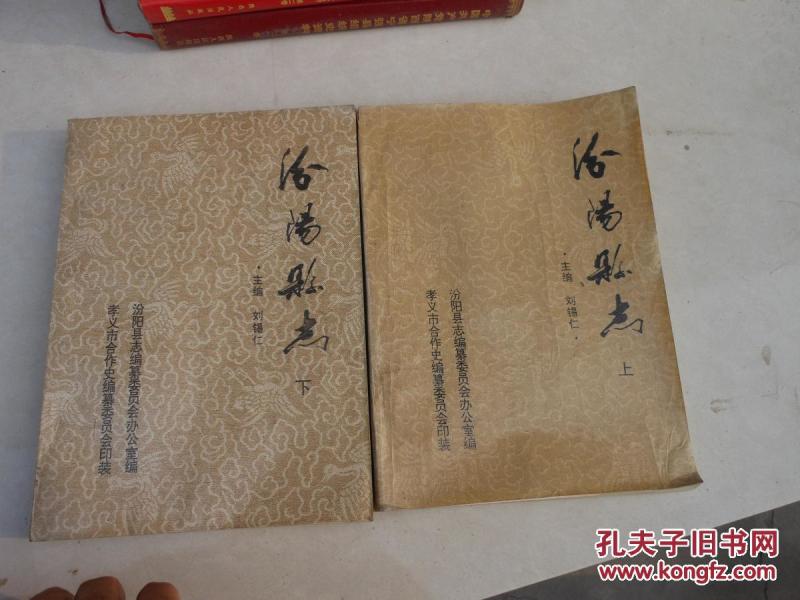 汾陽縣志
·主编 刘锡仁·
下
汾阳县志编纂委员会办公室编
孝义市合作史编纂委员会印装
汾陽縣志
·主编 刘锡仁·
上
汾阳县志编纂委员会办公室编
孝义市合作史编纂委员会印装
孔夫子旧书网
www.kongfz.com